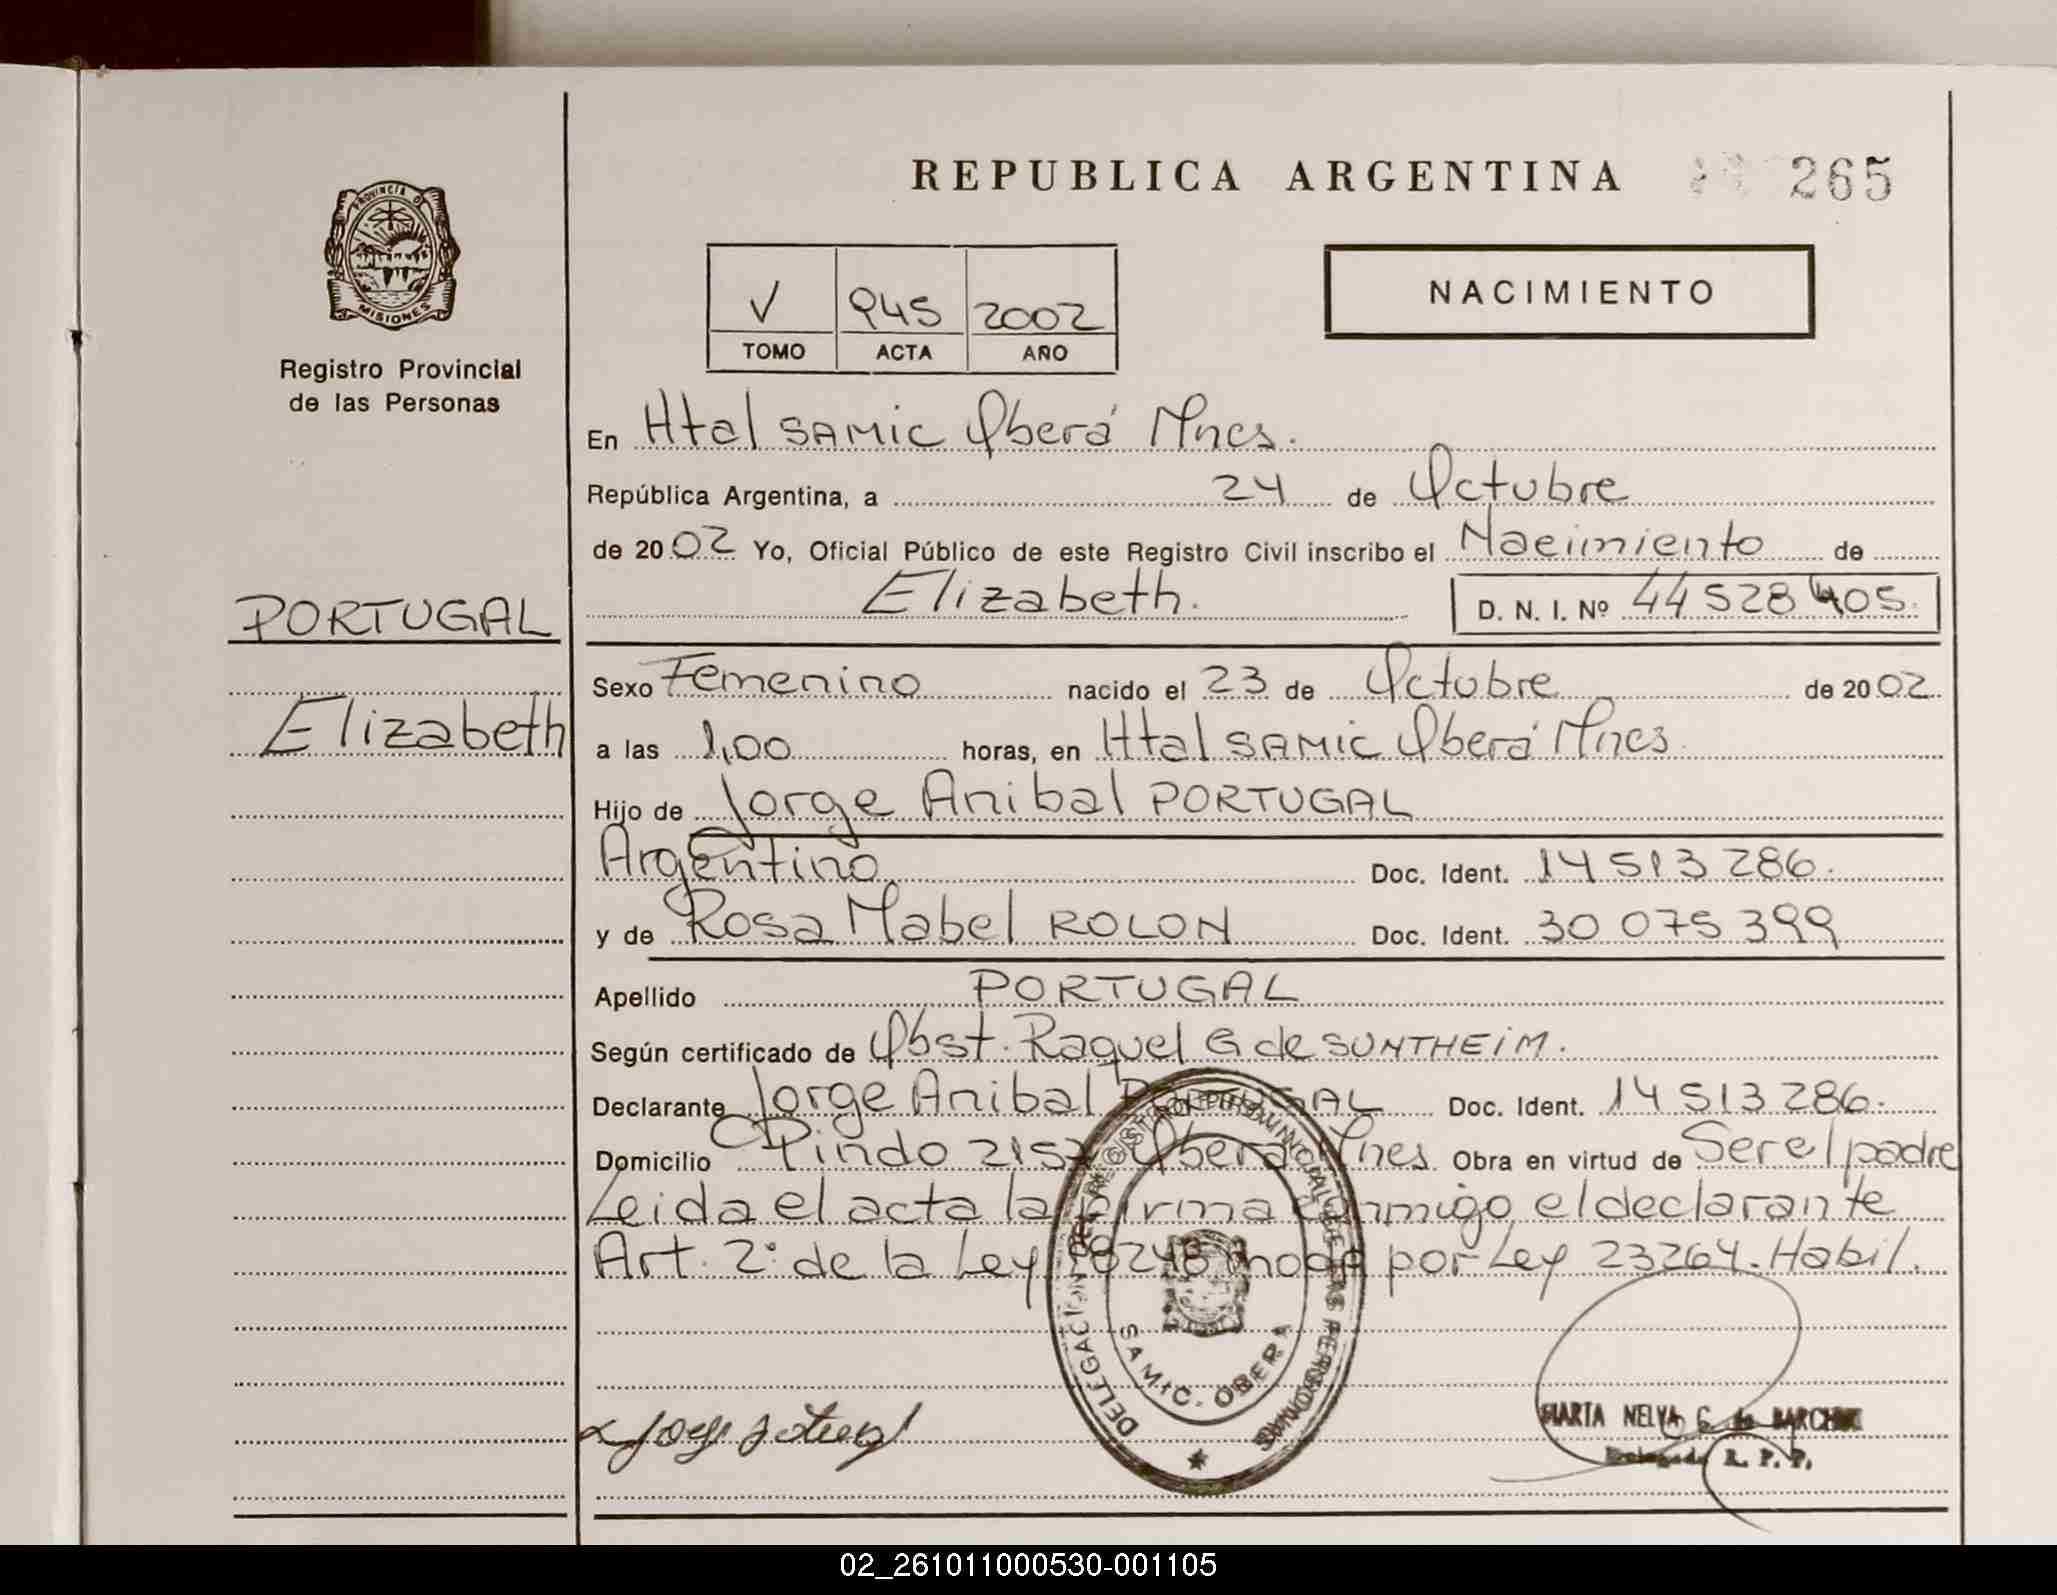 REPUBLICA ARGENTINA 265
PROVINCIA DE
MISIONES
Registro Provincial
de las Personas
NACIMIENTO
V 945 2002
TOMO ACTA AÑO
En Htal SAMIC Oberá Mnes.
República Argentina, a 24 de Octubre
de 2002 Yo, Oficial Público de este Registro Civil inscribo el Nacimiento de
Elizabeth. D. N. I. Nº 44 528 405.
PORTUGAL
Elizabeth
Sexo Femenino nacido el 23 de Octubre de 2002
a las 1,00 horas, en Htal SAMIC Oberá Mnes.
Hijo de Jorge Anibal PORTUGAL
Argentino Doc. Ident. 14 513 286.
y de Rosa Mabel ROLON Doc. Ident. 30 075 399
Apellido PORTUGAL
Según certificado de Obst. Raquel G de SUNTHEIM.
Declarante Jorge Anibal PORTUGAL Doc. Ident. 14 513 286.
Domicilio Pindo 2157 Oberá Mnes Obra en virtud de Ser el padre
Leida el acta la firma conmigo el declarante
Art. 2º de la Ley 18248 modf por Ley 23264. Habil.
DELEGACION DEL REGISTRO PROVINCIAL DE LAS PERSONAS
SAMIC. OBERA
MARTA NELVA G. de
Delegada R. P. P.
02_261011000530-001105